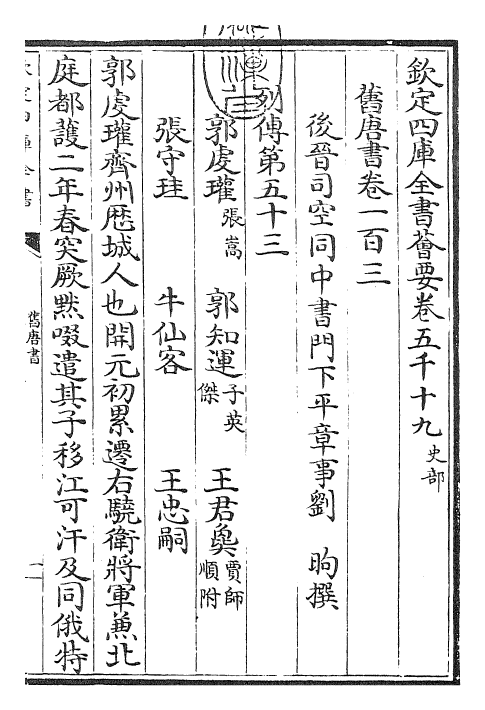 欽定四庫全書薈要卷五千十九 史部
舊唐書卷一百三
後晉司空同中書門下平章事劉 昫撰
列傳第五十三
郭虔瓘 張嵩 郭知運 子英傑 王君㚟 賈師順附
張守珪 牛仙客 王忠嗣
郭虔瓘齊州歷城人也開元初累遷右驍衛將軍兼北
庭都護二年春突厥黙啜遣其子移江可汗及同俄特
舊唐書
一